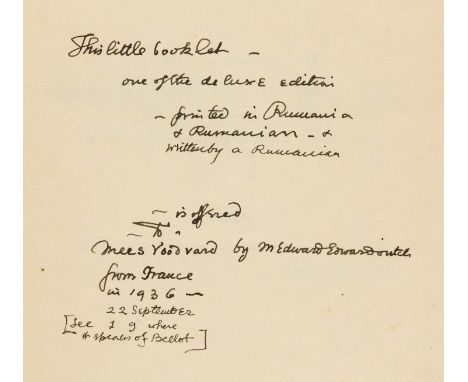 This little booklet –
one of the de luxe edition
– printed in Rumania
& Rumanian – &
written by a Rumanian
– is offred
– To –
Mees Voodvard by M Edward
from France
in 1936 –
22 September
[see 1 9 where
it speaks of Bellot]